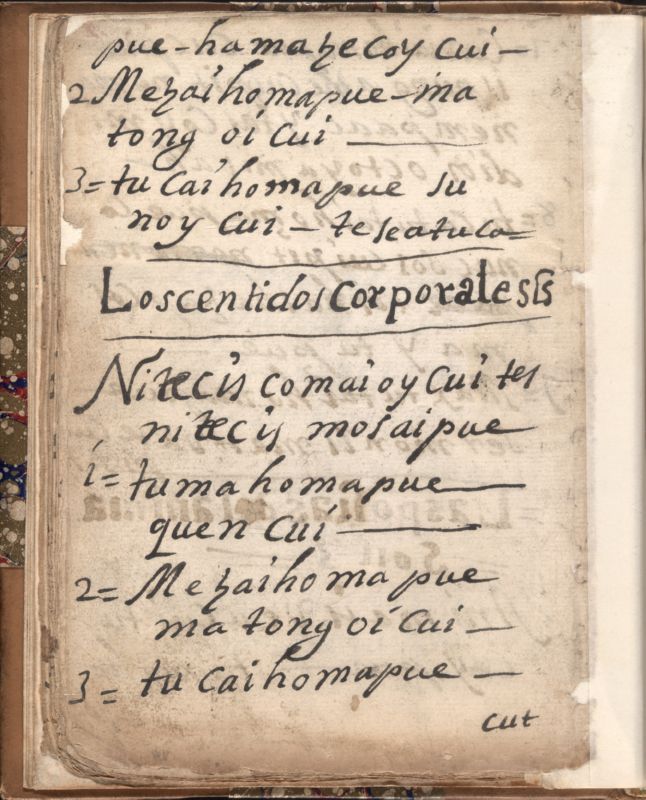 pue-hamaʒecoy cui-
2 Meʒaihomapue-ma
tong oi cui —
3= tu caihomapue su
noy cui - te seatuca=
Loscentidos corporalesis
Nitecis comaioy cui tes
nitecis mosaipue
1= tumahomapue—
quen cui —
2= Meʒaihoma pue
ma tong oi cui -
3= tu caihomapue -
cut